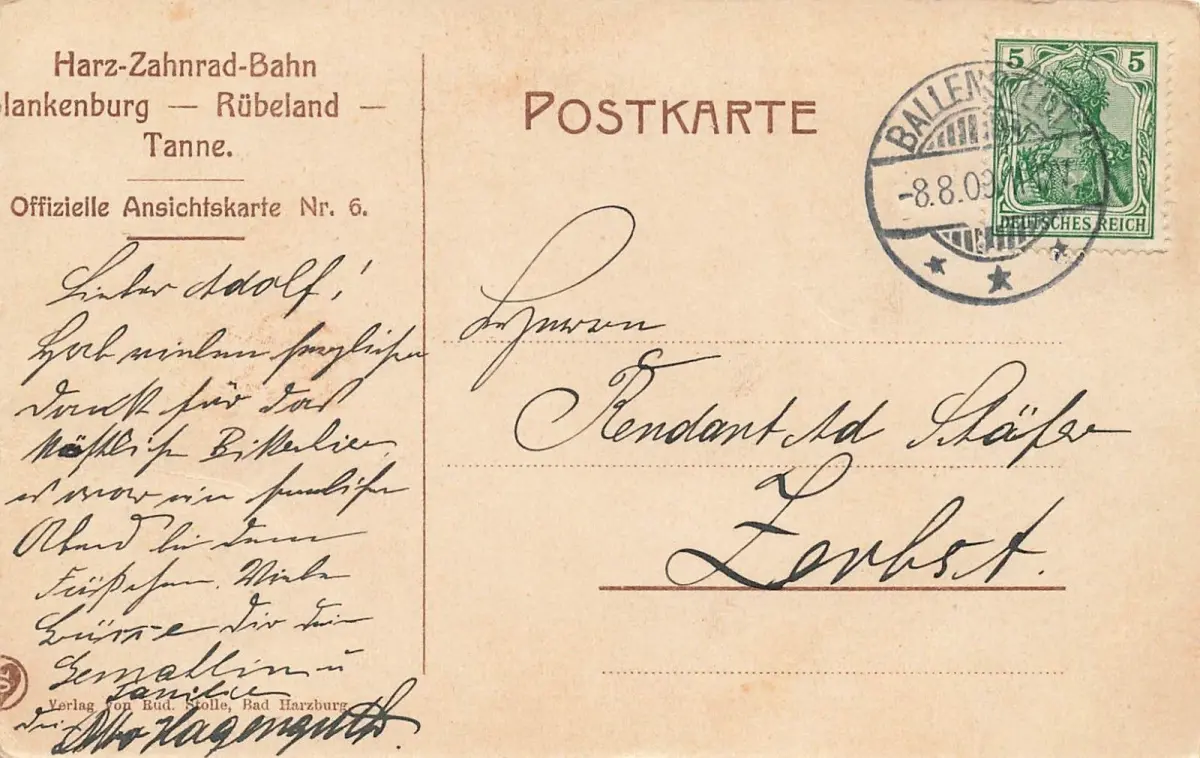 Harz-Zahnrad-Bahn
lankenburg — Rübeland —
Tanne.
Offizielle Ansichtskarte Nr. 6.
POSTKARTE
BALLENSTEDT
-8.8.09
5 5
DEUTSCHES REICH
Lieber Adolf!
Hab vielen herzlichen
Dank für das
köstliche
es war ein herrlicher
Abend bei dem
Fäßchen. Viele
Grüsse dir dein
Gemahlin u
Familie
dein Otto Hagenguth.
Verlag von Rud. Stolle, Bad Harzburg
Herrn
Rendant Ad Schäfer
Zerbst.